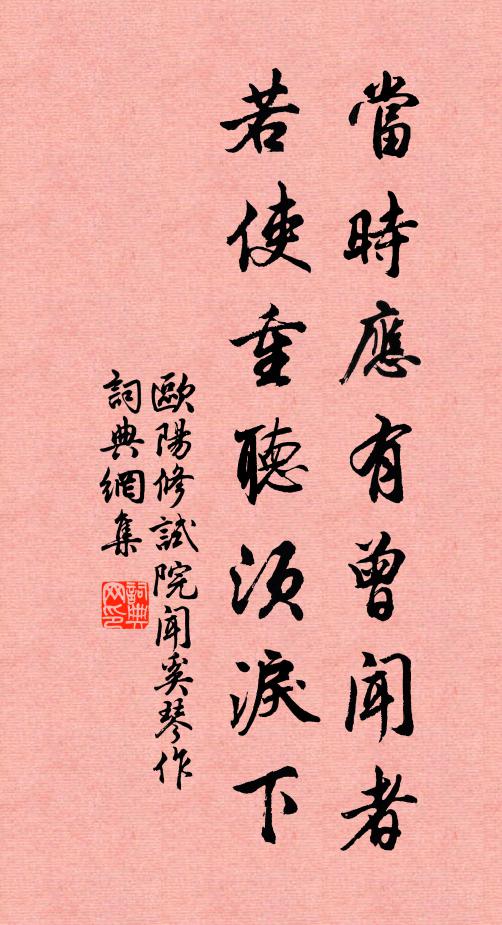 當時應有曾聞者
若使重聽須淚下
歐陽修試院聞奚琴作
詞典網集
詞典網印